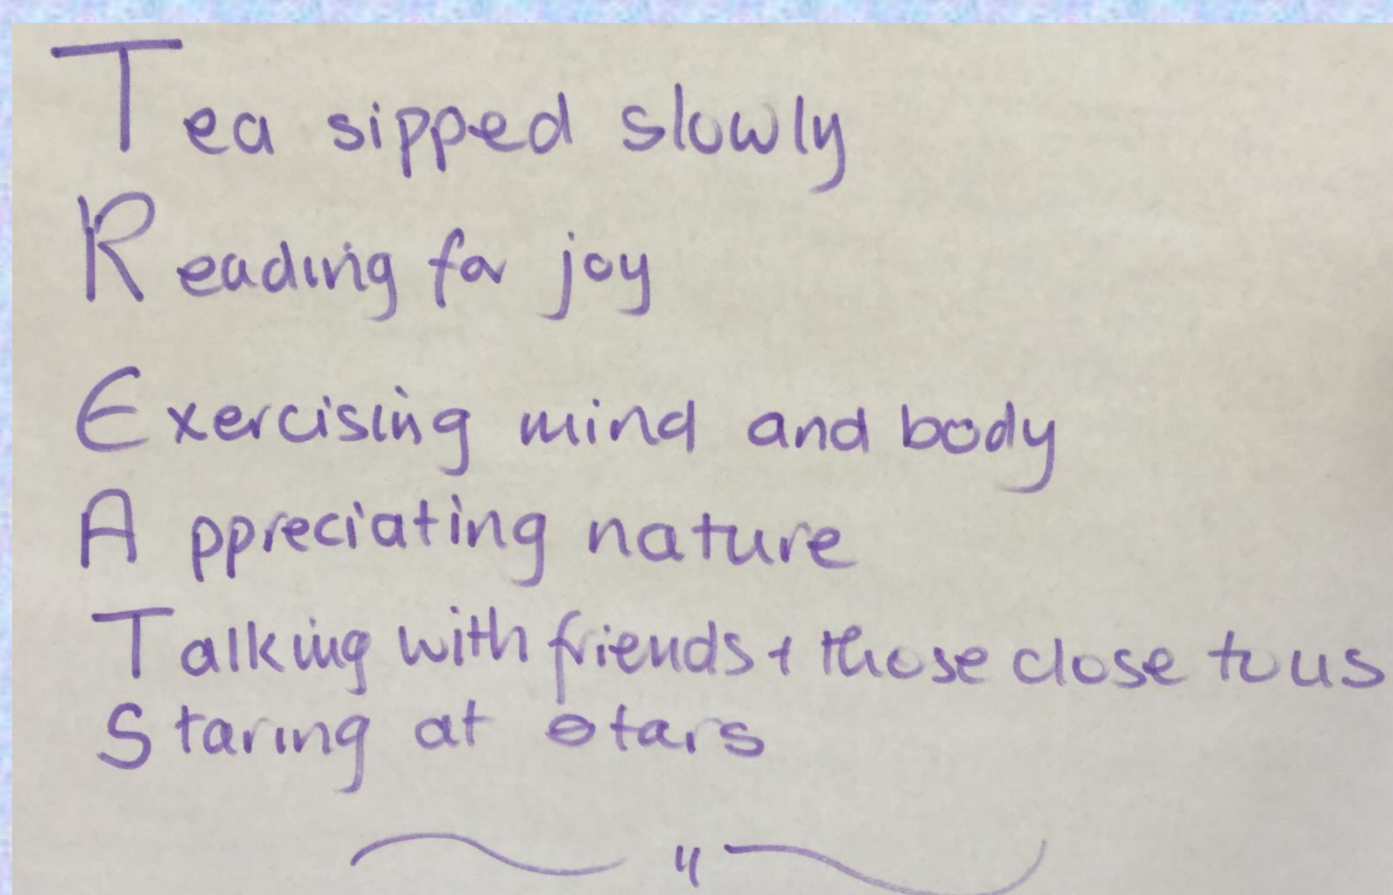 Tea sipped slowly
Reading for joy
Exercising mind and body
Appreciating nature
Talking with friends + those close to us
Staring at stars